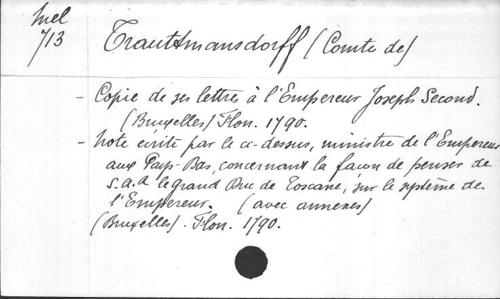 Mel
713
Trauttmansdorff (Comte de)
- Copie de ses lettres à l'Empereur Joseph Second.
(Bruxelles) Flon. 1790.
- Note écrite par le ci-dessus, ministre de l'Empereur
aux Pays-Bas, concernant la façon de penser de
S.A.R le grand Duc de Toscane, sur le système de
l'Empereur. (avec annexes)
(Bruxelles). Flon. 1790.